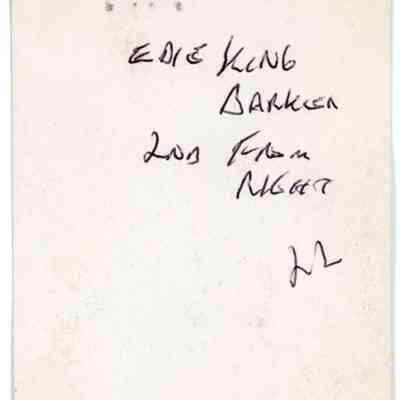 EDIE KING
BARKER
2ND FROM
RIGHT